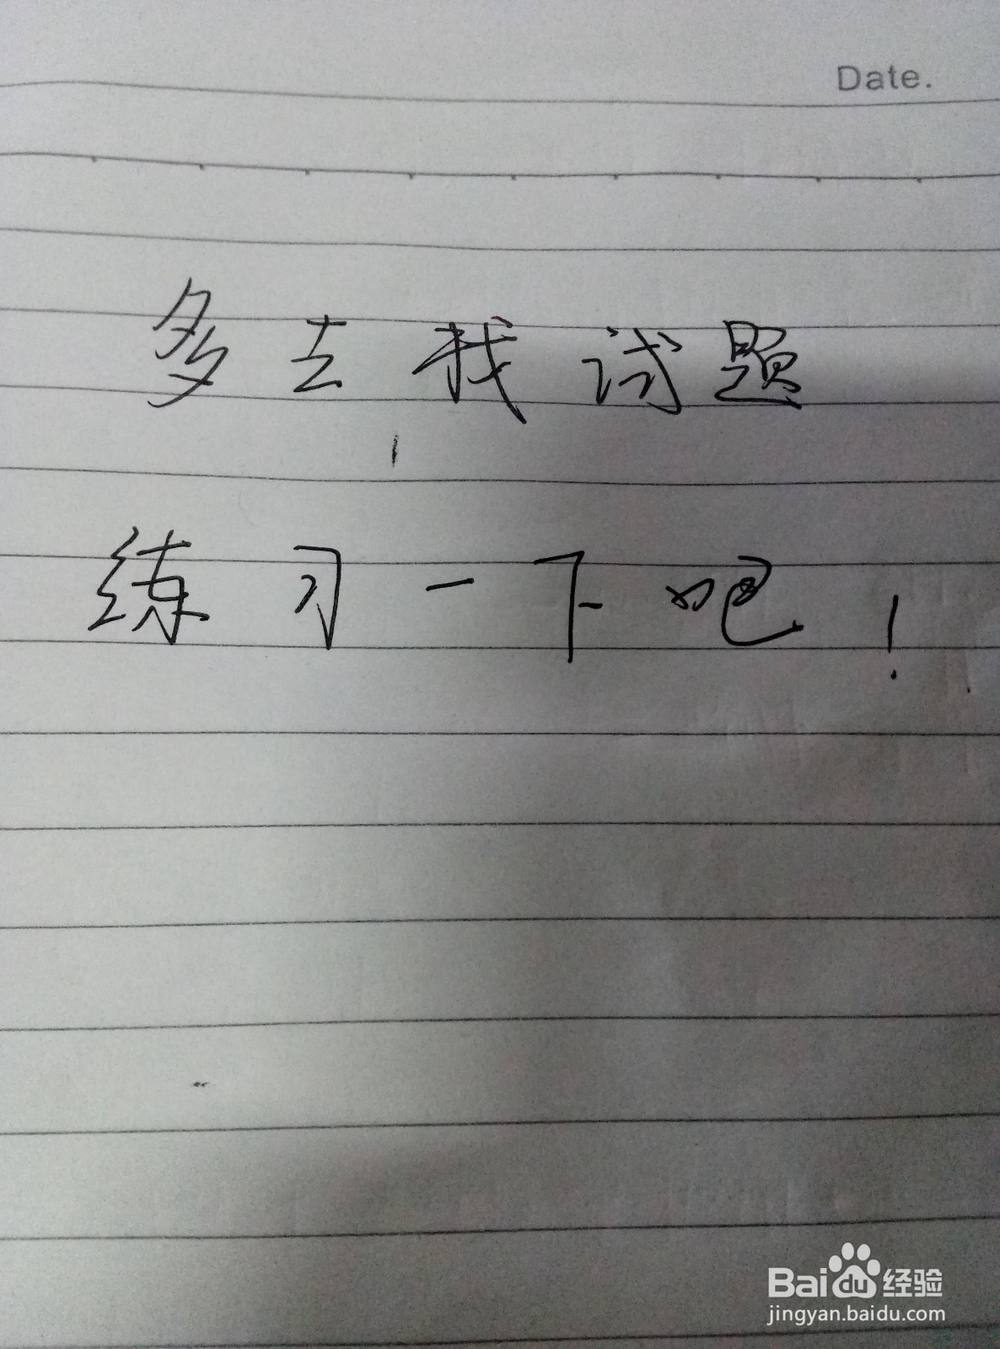 Date.
多去找试题
练习一下吧！
Baidu经验
jingyan.baidu.com